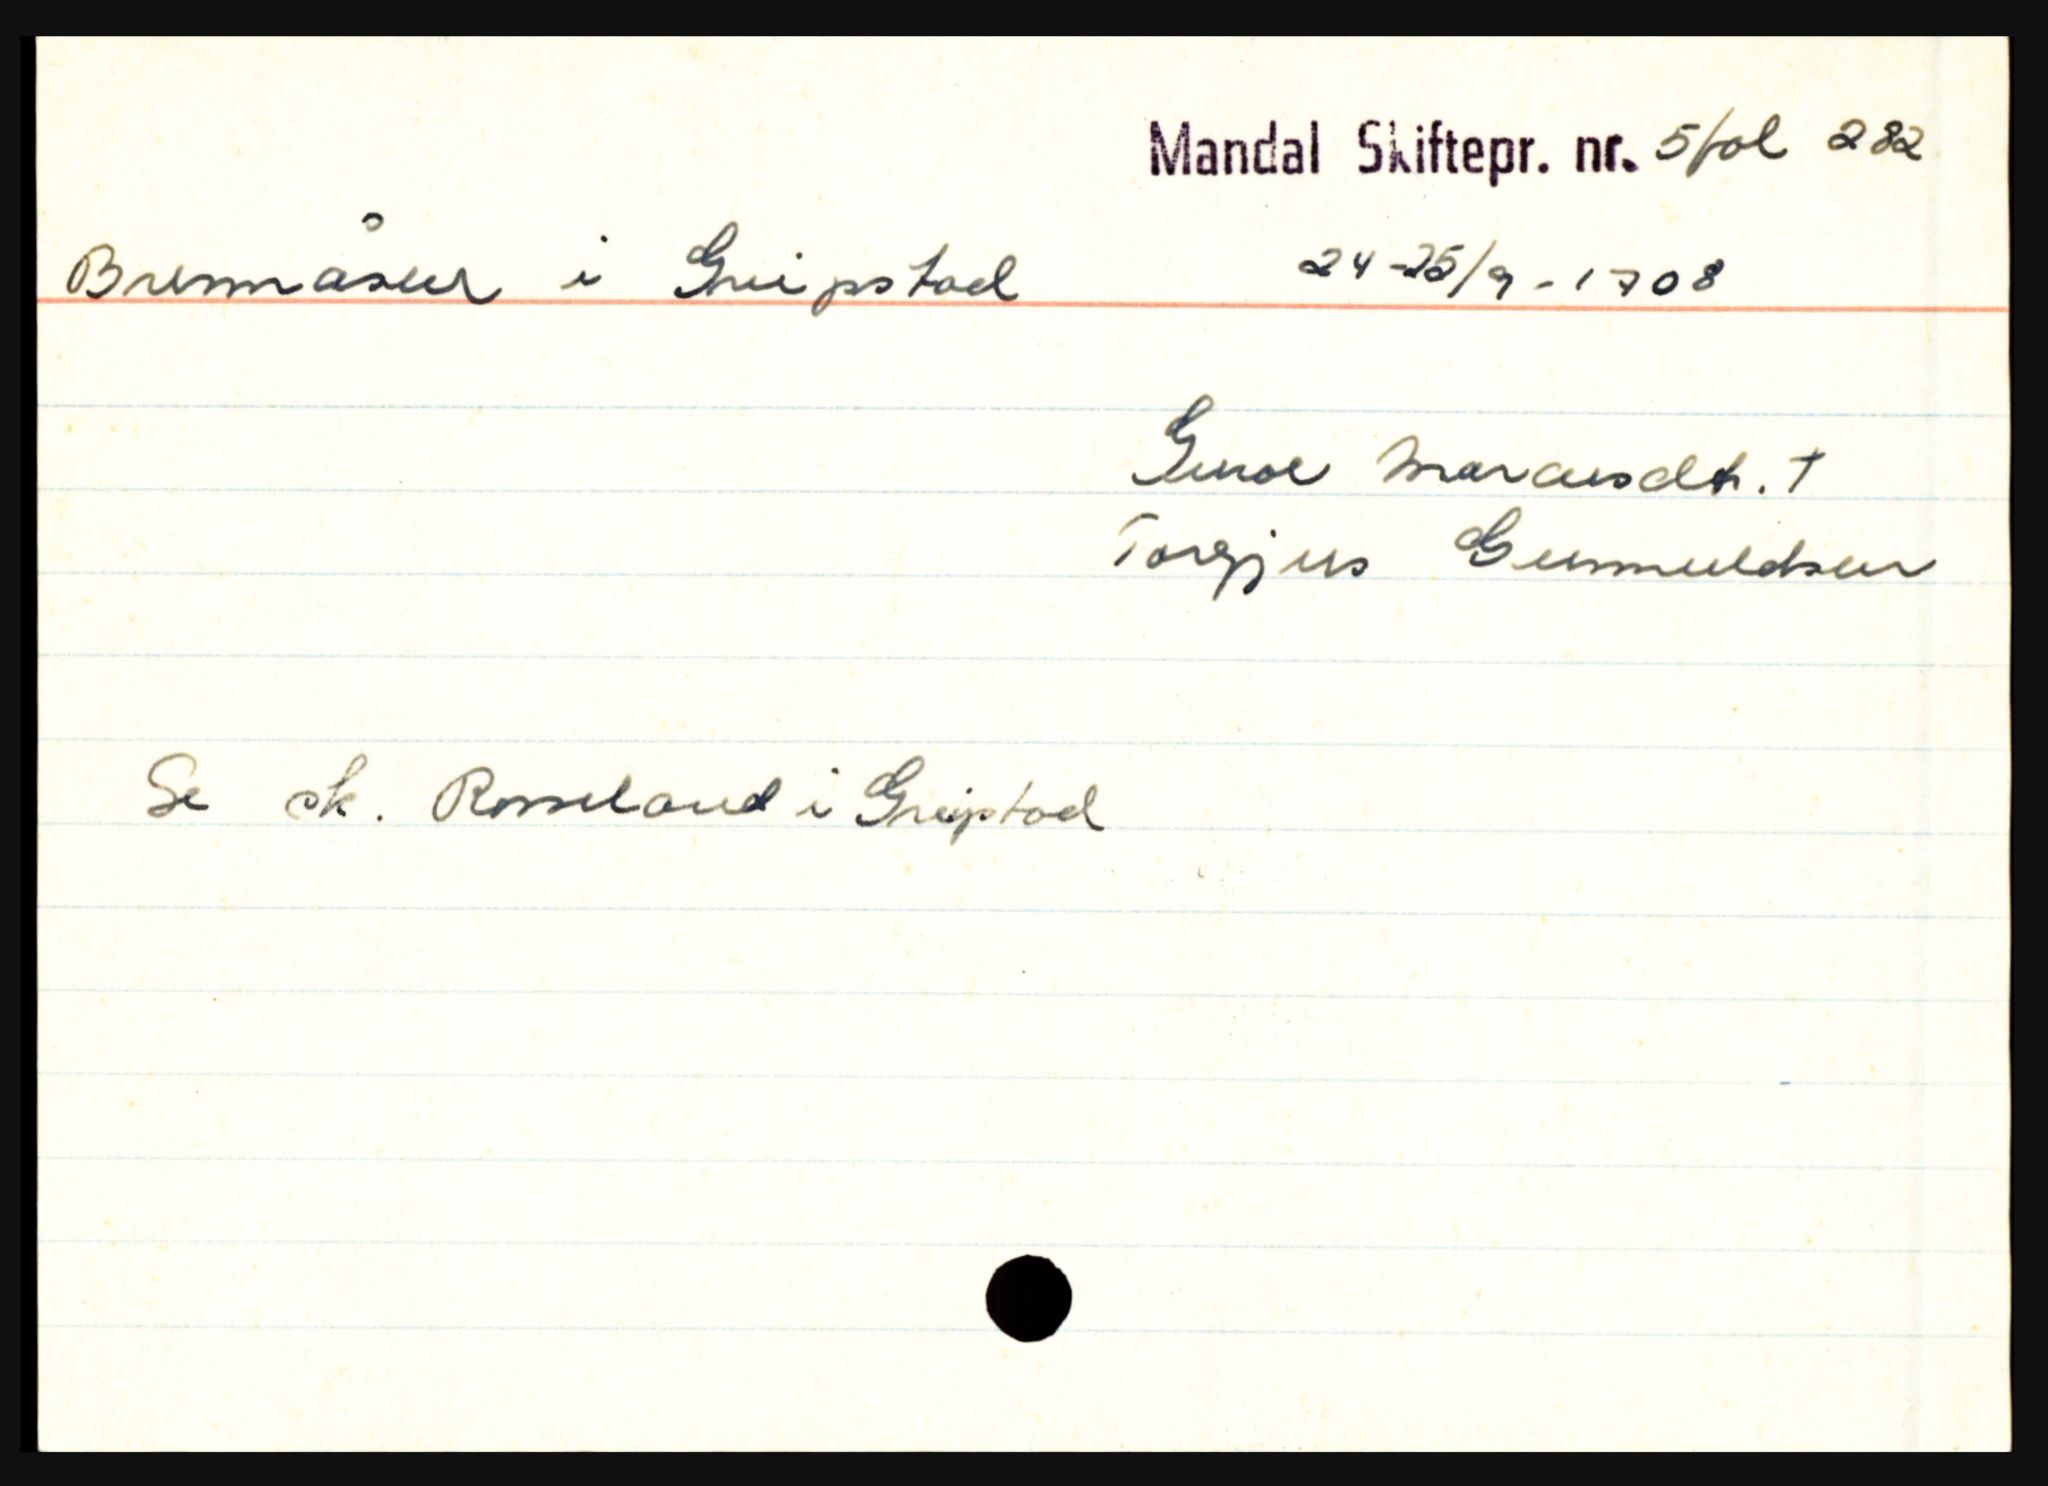 Mandal Skiftepr. nr. 5/fol 282
Brennåsen i Greipstad 24-25/9-1708
Guroe Marcusdtr. †
Torgjus Gunnuldsen
Se sk. Rosseland i Greipstad